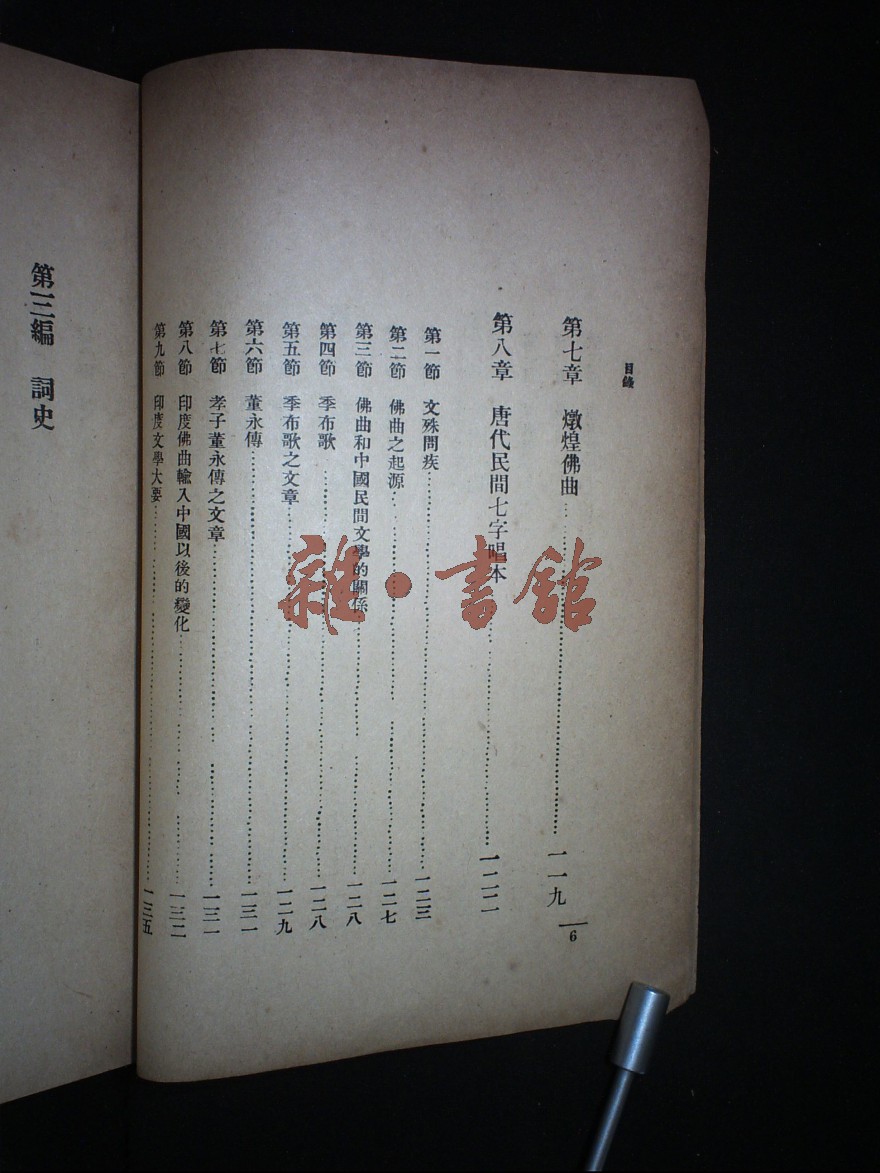 目錄
第七章 燉煌佛曲……一一九
第八章 唐代民間七字唱本……一二二
第一節 文殊問疾……一二三
第二節 佛曲之起源……一二七
第三節 佛曲和中國民間文學的關係……一二八
第四節 季布歌……一二八
第五節 季布歌之文章……一二九
第六節 董永傳……一三一
第七節 孝子董永傳之文章……一三一
第八節 印度佛曲輸入中國以後的變化……一三二
第九節 印度文學大要……一三五
6
第三編 詞史
雜·書館